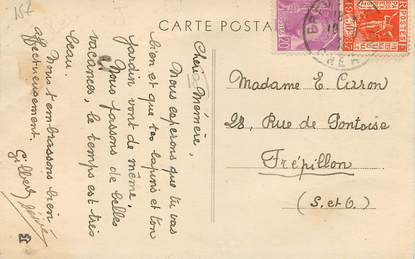 CARTE POSTALE
Chère Mémère,
Nous esperons que tu vas
bien et que tes lapins et ton
jardin vont de même.
Nous passons de belles
vacances, le temps est très
beau.
Nous t'embrassons bien
affectueusement.
Gilbert
Madame E. Caron
28, Rue de Pontoise
Frépillon
(S. et O.)